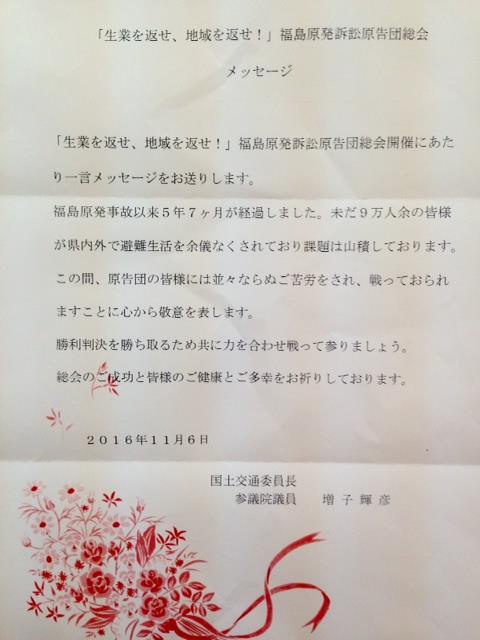 「生業を返せ、地域を返せ！」福島原発訴訟原告団総会
メッセージ
「生業を返せ、地域を返せ！」福島原発訴訟原告団総会開催にあた
り一言メッセージをお送りします。
福島原発事故以来５年７ヶ月が経過しました。未だ９万人余の皆様
が県内外で避難生活を余儀なくされており課題は山積しております。
この間、原告団の皆様には並々ならぬご苦労をされ、戦っておられ
ますことに心から敬意を表します。
勝利判決を勝ち取るため共に力を合わせ戦って参りましょう。
総会のご成功と皆様のご健康とご多幸をお祈りしております。
２０１６年１１月６日
国土交通委員長
参議院議員　増子輝彦